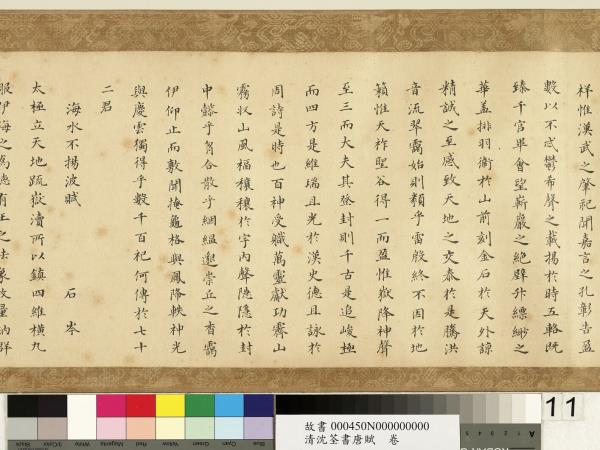 祥惟漢武之肇祀聞嘉言之孔彰昔盈
數以不忒鬱希聲之載揚於時五輅既
臻千官畢會望嶄巖之絕壁升縹緲之
華蓋排羽衛於山前刻金石於天外諒
精誠之至感致天地之交泰於是騰洪
音流翠靄始則類乎雷殷終不因於地
籟惟天祚聖谷得一而盈惟嶽降神聲
至三而大夫其登封則千古是追峻極
而四方是維瑞且光於漢史德且詠於
周詩是時也百神受職萬靈獻功霽山
霧收山風福穰穰於宇內聲隱隱於封
中懿乎肸合散乎絪縕邈崇丘之杳靄
伊仰止而敷聞掩龜格與鳳降軼神光
與慶雲獨得乎數千百祀何傳於七十
二君
海水不揚波賦 石岑
太極立天地疏嶽瀆所以鎮四維橫九
服伊海之為德有王之法象故量納群
11
故書 000450N000000000
清沈荃書唐賦 卷
Black
3/Color
White
Magenta
Red
Yellow
Green
Cyan
Blue
A